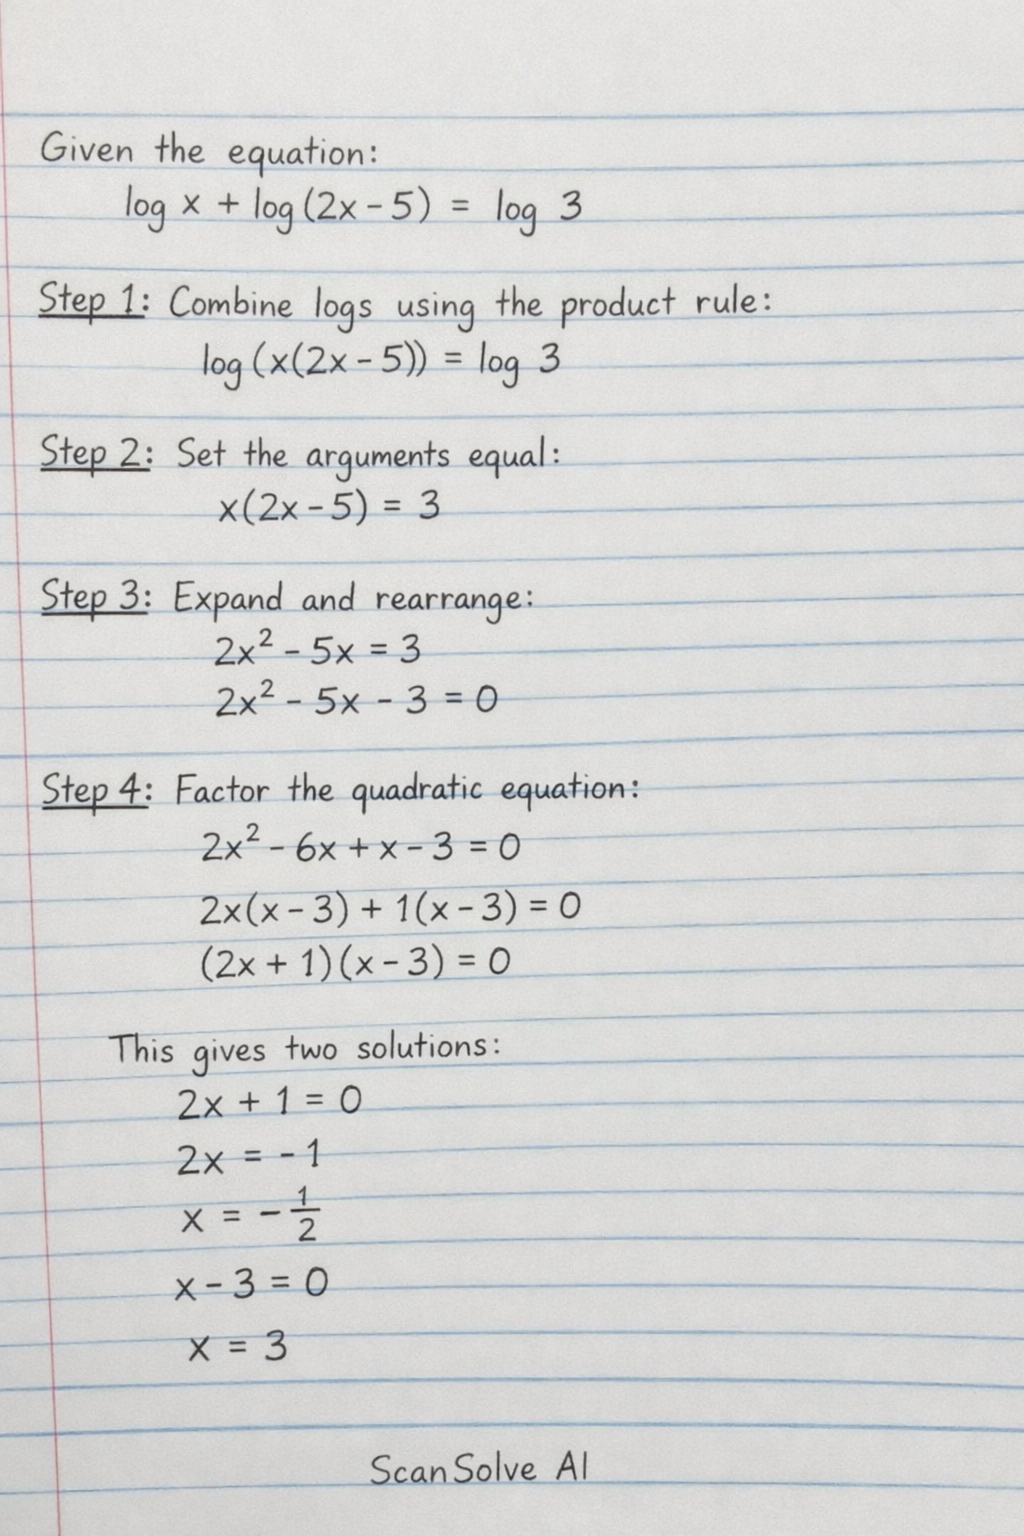 Given the equation:
log x + log (2x - 5) = log 3
Step 1: Combine logs using the product rule:
log (x(2x - 5)) = log 3
Step 2: Set the arguments equal:
x(2x - 5) = 3
Step 3: Expand and rearrange:
2x² - 5x = 3
2x² - 5x - 3 = 0
Step 4: Factor the quadratic equation:
2x² - 6x + x - 3 = 0
2x(x - 3) + 1(x - 3) = 0
(2x + 1)(x - 3) = 0
This gives two solutions:
2x + 1 = 0
2x = -1
x = - 1/2
x - 3 = 0
x = 3
ScanSolve AI